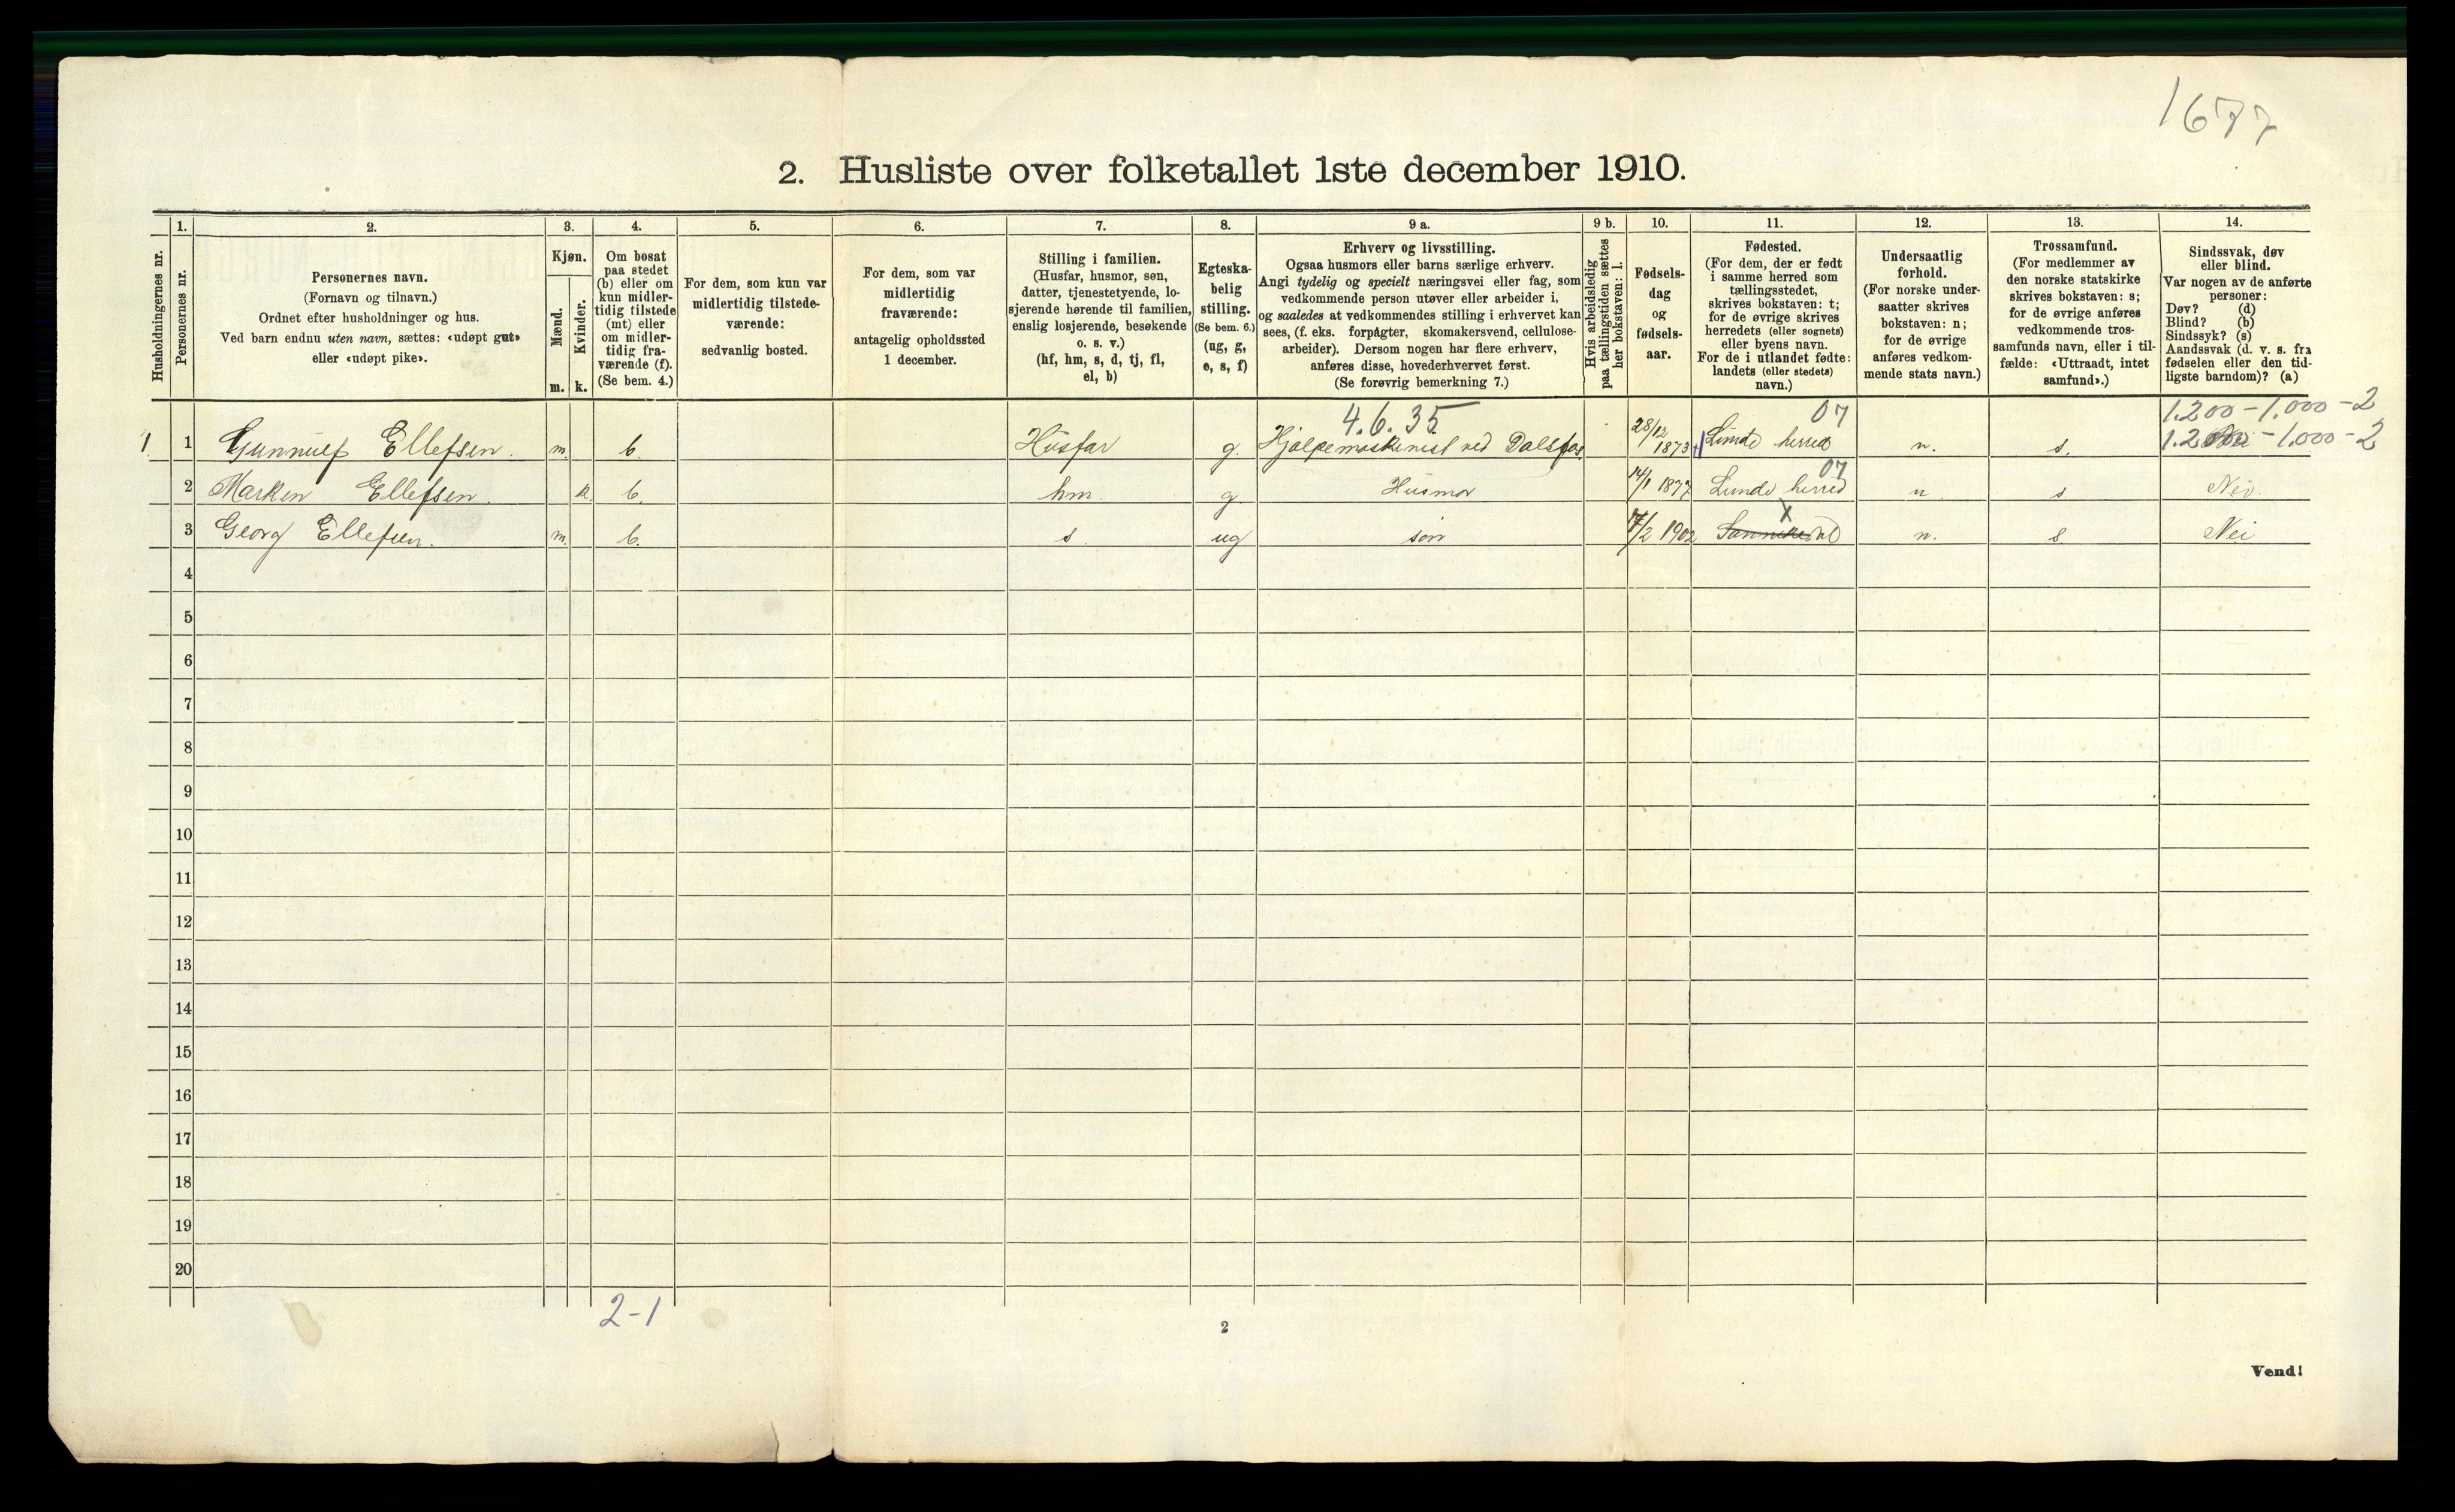 1677
2. Husliste over folketallet 1ste december 1910.
Husholdningernes nr.
1.
Personernes nr.
2.
Personernes navn.
(Fornavn og tilnavn.)
Ordnet efter husholdninger og hus.
Ved barn endnu uten navn, sættes: «udøpt gut»
eller «udøpt pike».
3.
Kjøn.
Mænd.
m.
Kvinder.
k.
4.
Om bosat
paa stedet
(b) eller om
kun midler-
tidig tilstede
(mt) eller
om midler-
tidig fra-
værende (f).
(Se bem. 4.)
5.
For dem, som kun var
midlertidig tilstede-
værende:
sedvanlig bosted.
6.
For dem, som var
midlertidig
fraværende:
antagelig opholdssted
1 december.
7.
Stilling i familien.
(Husfar, husmor, søn,
datter, tjenestetyende, lo-
sjerende hørende til familien,
enslig losjerende, besøkende
o. s. v.)
(hf, hm, s, d, tj, fl,
el, b)
8.
Egteska-
belig
stilling.
(Se bem. 6.)
(ug, g,
e, s, f)
9 a.
Erhverv og livsstilling.
Ogsaa husmors eller barns særlige erhverv.
Angi tydelig og specielt næringsvei eller fag, som
vedkommende person utøver eller arbeider i,
og saaledes at vedkommendes stilling i erhvervet kan
sees, (f. eks. forpagter, skomakersvend, cellulose-
arbeider). Dersom nogen har flere erhverv,
anføres disse, hovederhvervet først.
(Se forøvrig bemerkning 7.)
9 b.
Hvis arbeidsledig
paa tællingstiden sættes
her bokstaven: l.
10.
Fødsels-
dag
og
fødsels-
aar.
11.
Fødested.
(For dem, der er født
i samme herred som
tællingsstedet,
skrives bokstaven: t;
for de øvrige skrives
herredets (eller sognets)
eller byens navn.
For de i utlandet fødte:
landets (eller stedets)
navn.)
12.
Undersaatlig
forhold.
(For norske under-
saatter skrives
bokstaven: n;
for de øvrige
anføres vedkom-
mende stats navn.)
13.
Trossamfund.
(For medlemmer av
den norske statskirke
skrives bokstaven: s;
for de øvrige anføres
vedkommende tros-
samfunds navn, eller i til-
fælde: «Uttraadt, intet
samfund».)
14.
Sindssvak, døv
eller blind.
Var nogen av de anførte
personer:
Døv? (d)
Blind? (b)
Sindssyk? (s)
Aandssvak (d. v. s. fra
fødselen eller den tid-
ligste barndom)? (a)
4.6.35 07 1.200-1.000-2
1 1 Gunnulf Ellefsen. m. b. Husfar g. Hjælpemaskinist ved Dalsfos. 28/12 1873 Lunde herred n. s. 1.200-1.000-2
07
2 Marken Ellefsen. k. b. hm. g. Husmor 14/1 1877 Lunde herred n s Nei.
X
3 Georg Ellefsen. m. b. s. ug søn 17/2 1902 Sannikedal n. s Nei
4
5
6
7
8
9
10
11
12
13
14
15
16
17
18
19
20
2-1
2
Vend!